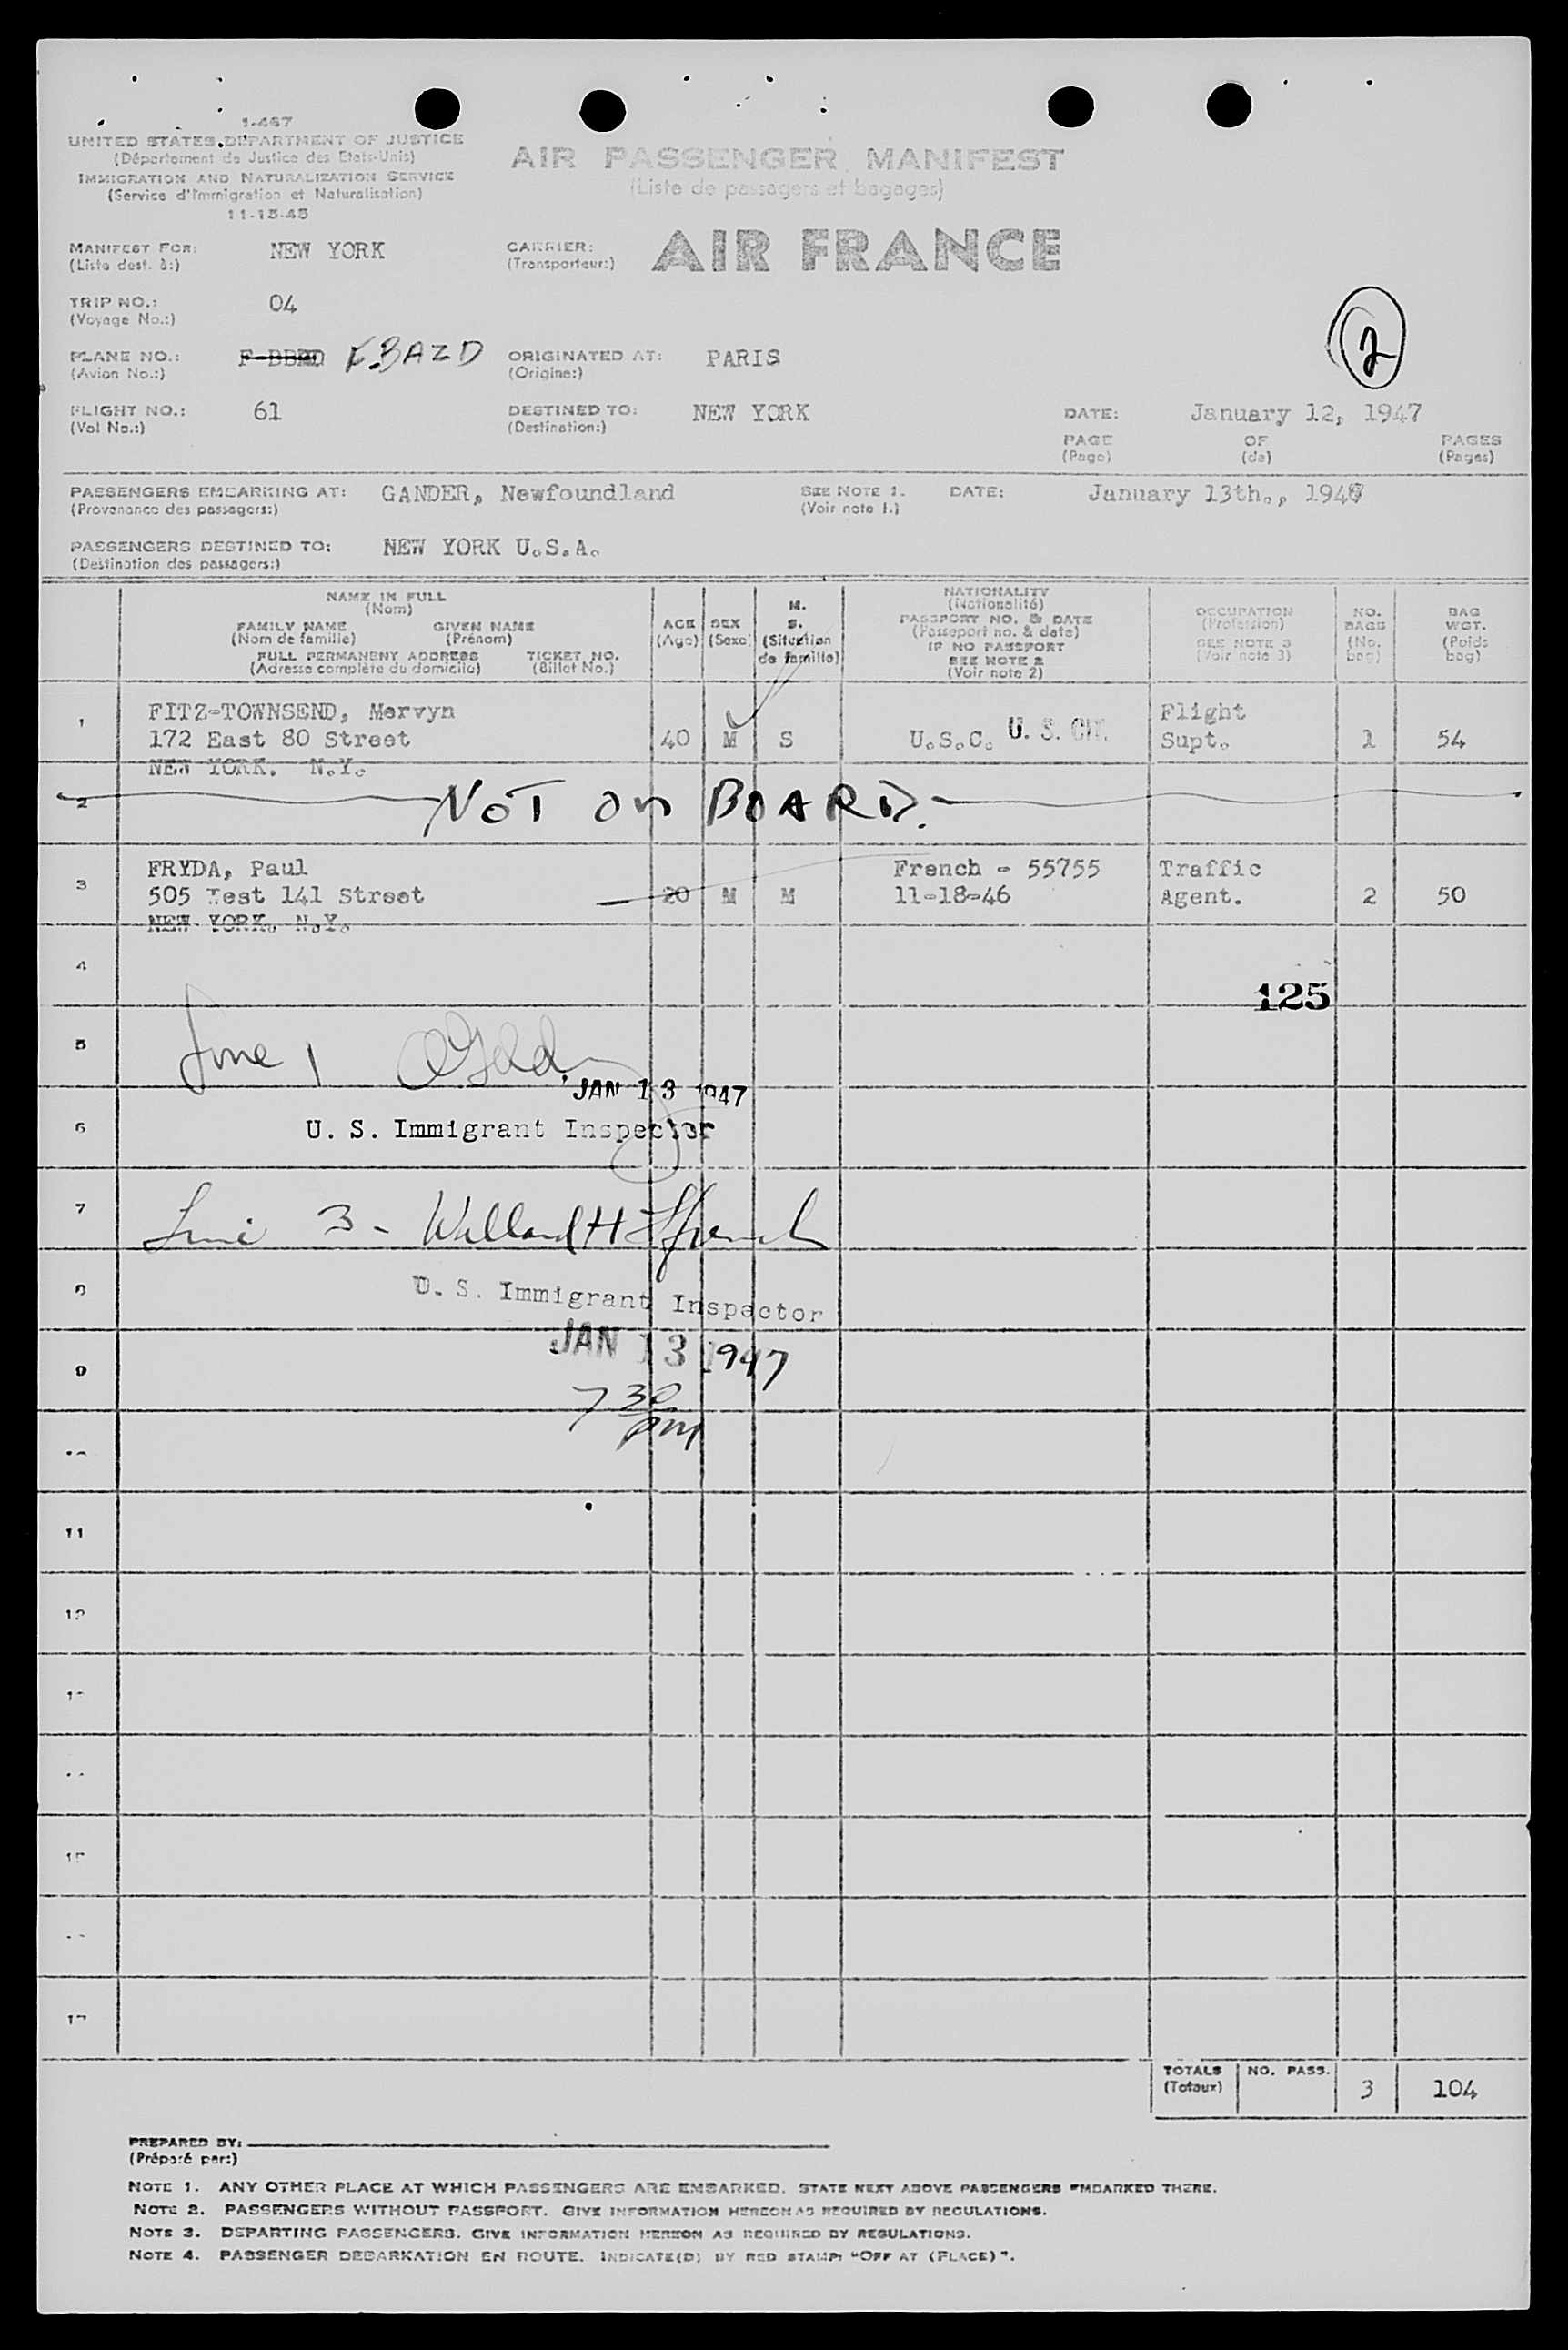 1-467
UNITED STATES DEPARTMENT OF JUSTICE
(Département de Justice des Etats-Unis)
IMMIGRATION AND NATURALIZATION SERVICE
(Service d'Immigration et Naturalisation)
11-15-45
AIR PASSENGER MANIFEST
(Liste de passagers et bagages)
MANIFEST FOR: NEW YORK
(Liste dest. à:)
CARRIER: AIR FRANCE
(Transporteur:)
TRIP NO.: 04
(Voyage No.:)
2
PLANE NO.: F-BAZD
(Avion No.:)
ORIGINATED AT: PARIS
(Origine:)
FLIGHT NO.: 61
(Vol No.:)
DESTINED TO: NEW YORK
(Destination:)
DATE: January 12, 1947
PAGE OF PAGES
(Page) (de) (Pages)
PASSENGERS EMBARKING AT: GANDER, Newfoundland SEE NOTE 1. DATE: January 13th., 1947
(Provenance des passagers:) (Voir note 1.)
PASSENGERS DESTINED TO: NEW YORK U.S.A.
(Destination des passagers:)
NAME IN FULL
(Nom)
FAMILY NAME GIVEN NAME
(Nom de famille) (Prénom)
FULL PERMANENT ADDRESS TICKET NO.
(Adresse complète du domicile) (Billet No.)
AGE
(Age)
SEX
(Sexe)
M.
S.
(Situation
de famille)
NATIONALITY
(Nationalité)
PASSPORT NO. & DATE
(Passeport no. & date)
IF NO PASSPORT
SEE NOTE 2
(Voir note 2)
OCCUPATION
(Profession)
SEE NOTE 3
(Voir note 3)
NO.
BAGS
(No.
bag)
BAG
WGT.
(Poids
bag)
1 FITZ-TOWNSEND, Mervyn Flight
172 East 80 Street 40 M S U.S.C. U. S. CIT. Supt. 1 54
NEW YORK. N.Y.
2 NOT ON BOARD.
3 FRYDA, Paul French - 55755 Traffic
505 West 141 Street 20 M M 11-18-46 Agent. 2 50
NEW YORK. N.Y.
4
125
5
JAN 13 1947
6 U. S. Immigrant Inspector
7 Line 3 - Willard H French
8 U. S. Immigrant Inspector
JAN 13 1947
9
7 30 PM
11
12
TOTALS NO. PASS. 3 104
(Totaux)
PREPARED BY:
(Préparé par:)
NOTE 1. ANY OTHER PLACE AT WHICH PASSENGERS ARE EMBARKED. STATE NEXT ABOVE PASSENGERS EMBARKED THERE.
NOTE 2. PASSENGERS WITHOUT PASSPORT. GIVE INFORMATION HEREON AS REQUIRED BY REGULATIONS.
NOTE 3. DEPARTING PASSENGERS. GIVE INFORMATION HEREON AS REQUIRED BY REGULATIONS.
NOTE 4. PASSENGER DEBARKATION EN ROUTE. INDICATE(D) BY RED STAMP: "OFF AT (PLACE)".